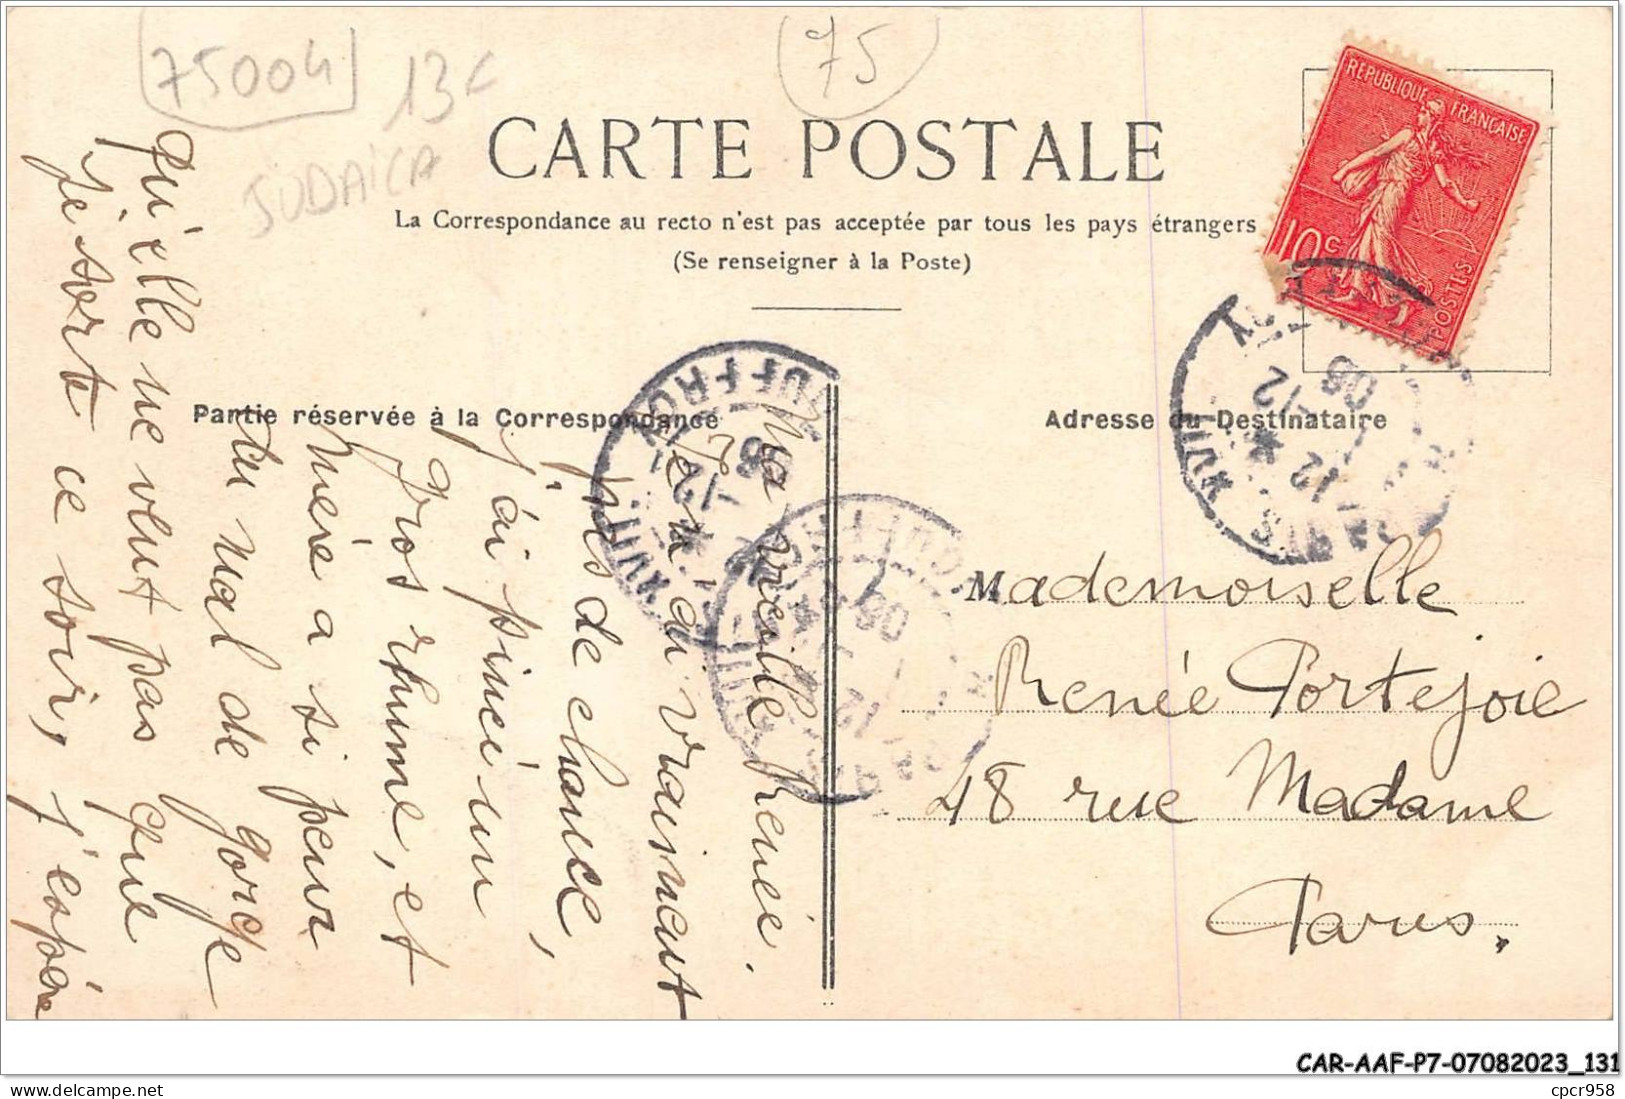 75004
13c
75
JUDAÏCA
CARTE POSTALE
La Correspondance au recto n'est pas acceptée par tous les pays étrangers
(Se renseigner à la Poste)
REPUBLIQUE FRANÇAISE
10c
POSTES
Partie réservée à la Correspondance
Adresse du Destinataire
Ma vieille Renée.
Je n'ai vraiment
pas de chance,
j'ai pincé un
gros rhume, et
mère a si peur
du mal de gorge
qu'elle ne veut pas que
je sorte ce soir, j'espère
Mademoiselle
Renée Portejoie
48 rue Madame
Paris.
CAR-AAF-P7-07082023_131
cpcr958